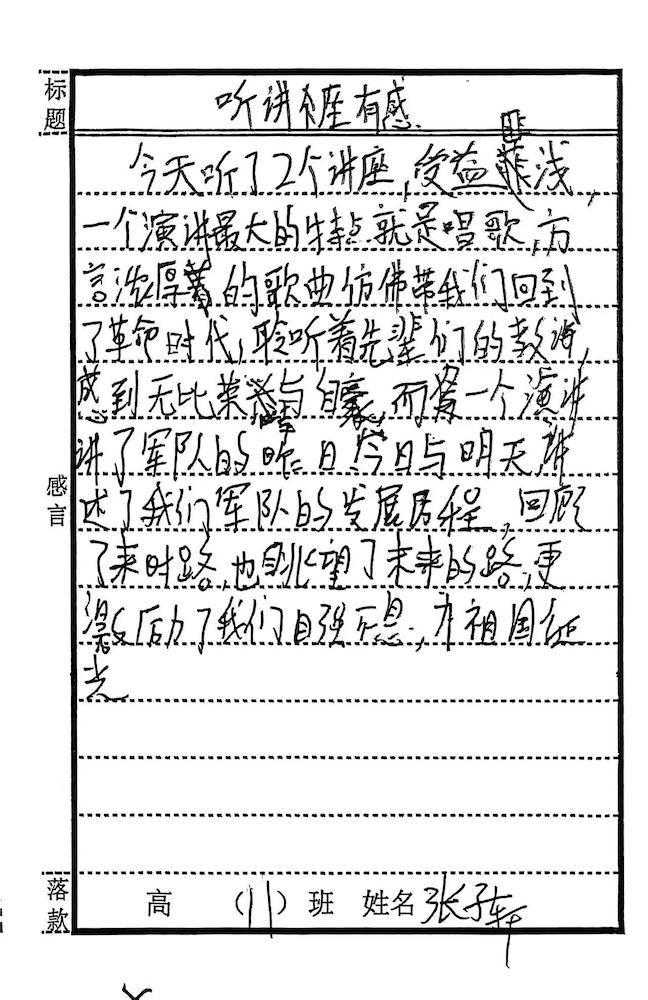 标题
听讲座有感
今天听了2个讲座,受益菲浅,
一个演讲最大的特点就是唱歌,方
言浓厚着的歌曲仿佛带我们回到
了革命时代,聆听着先辈们的教诲,
感到无比荣誉与自豪,而另一个演讲
讲了军队的昨日今日与明天,讲
感言
述了我们军队的发展历程,回顾
了来时路,也眺望了未来的路,更
激励了我们自强不息,为祖国征
光
落款
高 (11) 班 姓名 张子轩